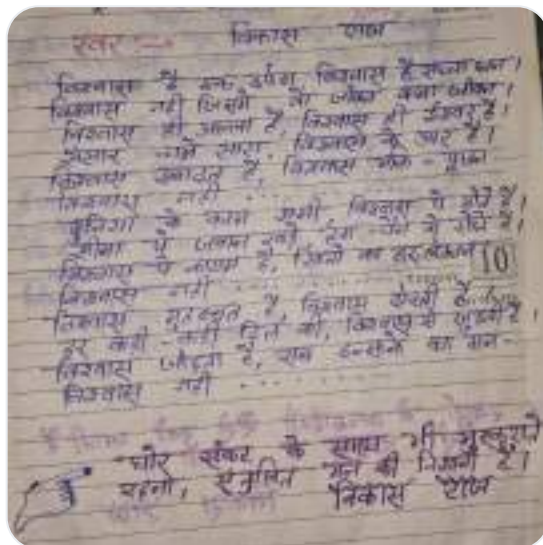 स्वर :- विकास राज
विश्वास है एक दर्पण विश्वास है सच्चा धन।
विश्वास नहीं जिसमें वो जीवन क्या जीवन।
विश्वास ही आत्मा है, विश्वास ही ईश्वर है।
संसार सारा, विश्वास के पर है।
विश्वास इबादत है, विश्वास भजन - पूजन
विश्वास नहीं ......
दुनिया के काम सभी विश्वास से होते हैं।
सीमा पे जवान
विश्वास पे कायम है,
10
विश्वास नहीं ......
विश्वास मुहब्बत है, विश्वास दोस्ती है
हर कड़ी - कड़ी दिल की, विश्वास से जुड़ती है।
विश्वास जोड़ता है, सब इन्सानों का मन -
विश्वास नहीं ......
घोर संकट के समय भी मुस्कुराते
रहना, संतुलित मन की निशानी है।
विकास राज